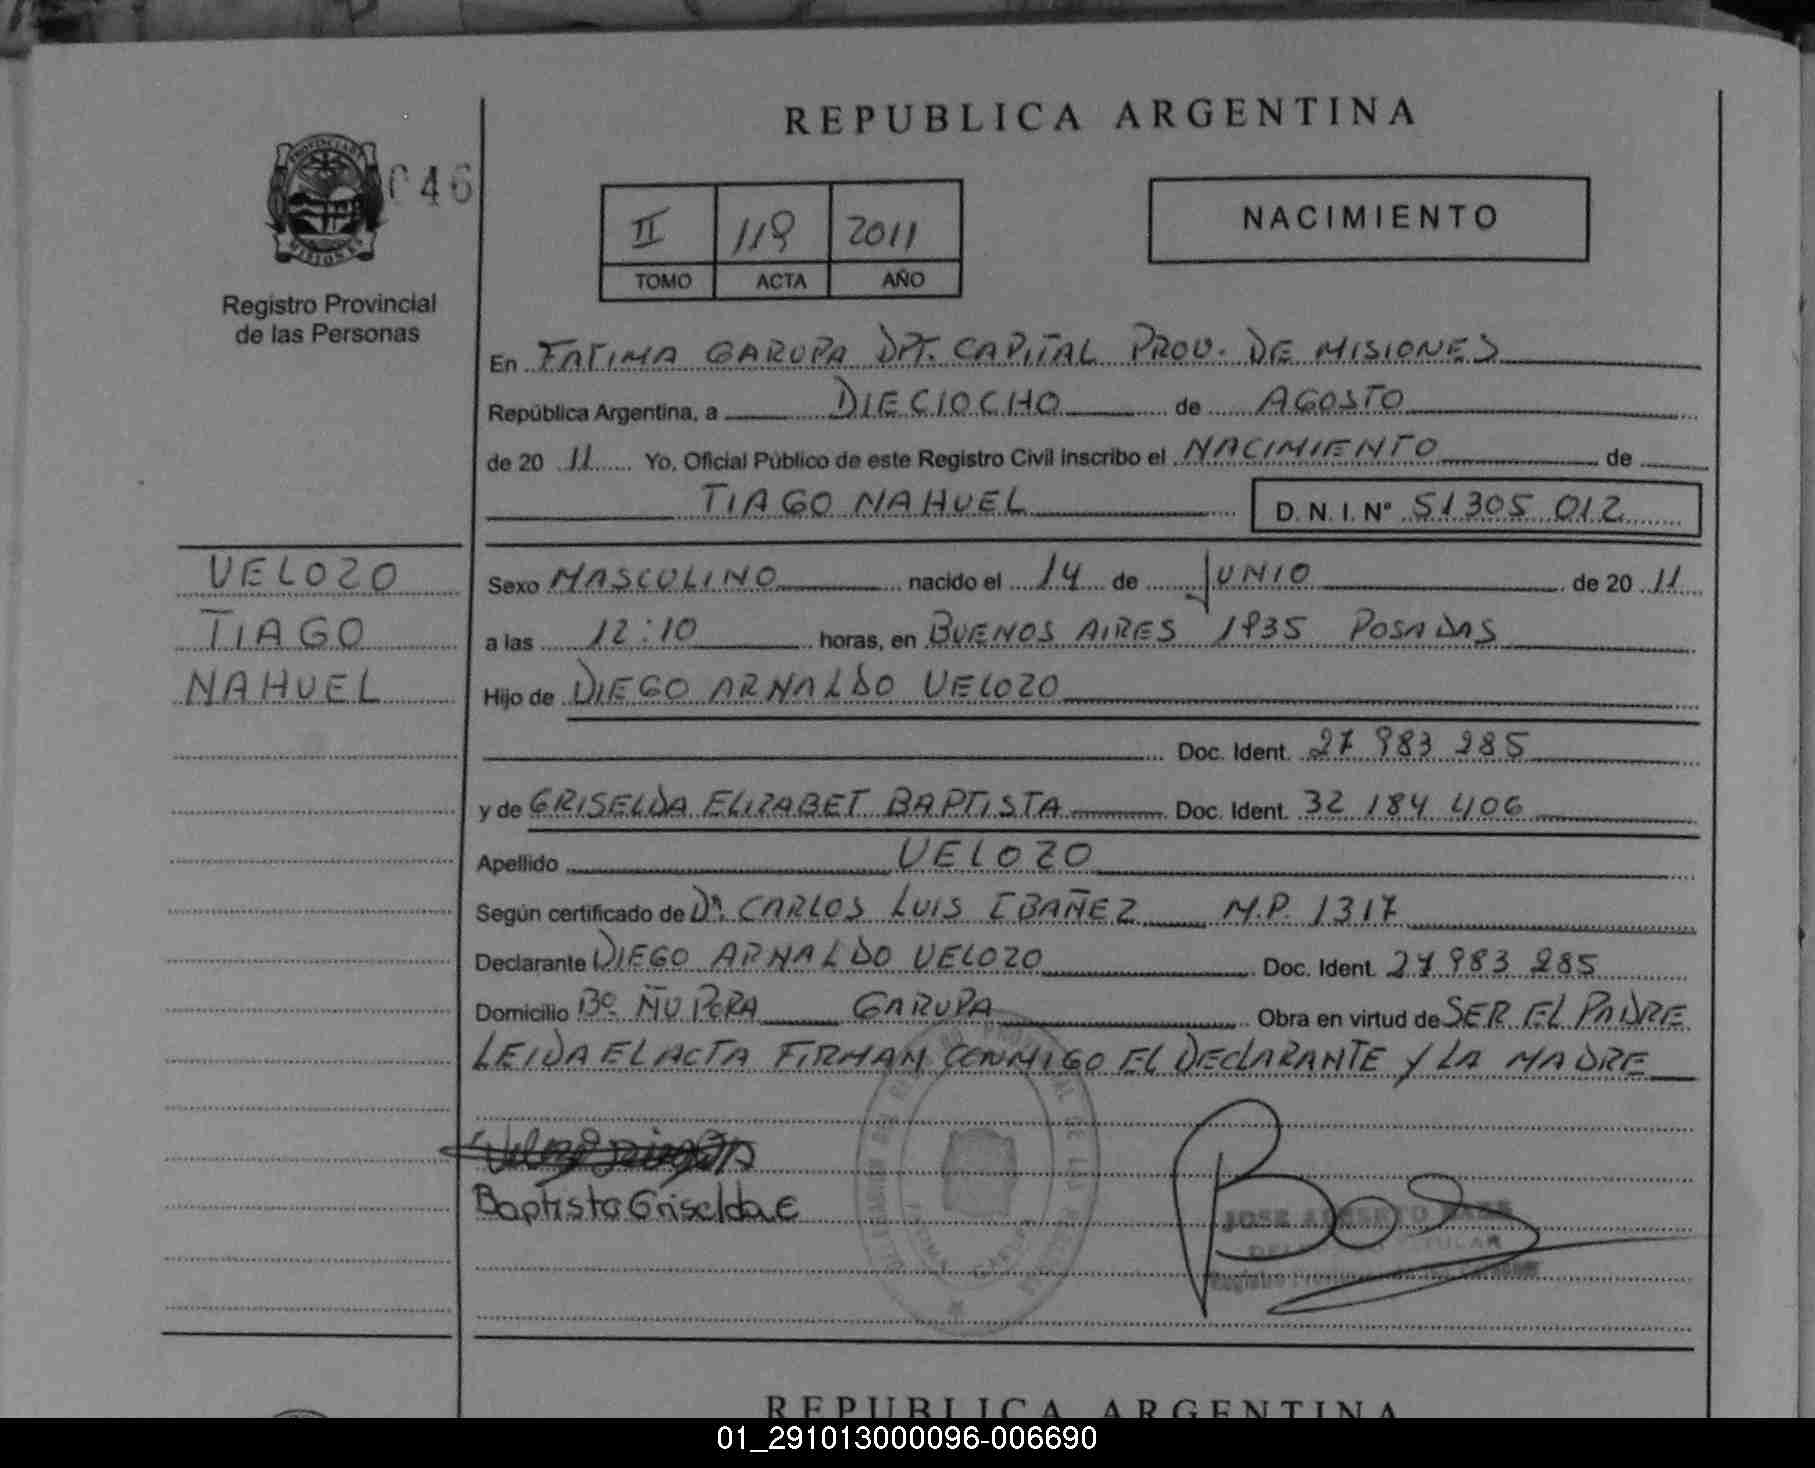 REPUBLICA ARGENTINA
046
NACIMIENTO
II 119 2011
TOMO ACTA AÑO
Registro Provincial
de las Personas
En FATIMA GARUPA DPT. CAPITAL PROV. DE MISIONES
República Argentina, a DIECIOCHO de AGOSTO
de 20 11 Yo, Oficial Público de este Registro Civil inscribo el NACIMIENTO de
TIAGO NAHUEL D.N.I. Nº 51305 012
VELOZO
TIAGO
NAHUEL
Sexo MASCULINO nacido el 14 de JUNIO de 20 11
a las 12:10 horas, en BUENOS AIRES 1935 POSADAS
Hijo de DIEGO ARNALDO VELOZO
Doc. Ident. 27 983 285
y de GRISELDA ELIZABET BAPTISTA Doc. Ident. 32 184 406
Apellido VELOZO
Según certificado de Dr. CARLOS LUIS IBAÑEZ M.P. 1317
Declarante DIEGO ARNALDO VELOZO Doc. Ident. 27 983 285
Domicilio Bº ÑU PORA GARUPA Obra en virtud de SER EL PADRE
LEIDA EL ACTA FIRMAN CONMIGO EL DECLARANTE Y LA MADRE
Baptista Griselda E
JOSE ALBERTO
TITULAR
REPUBLICA ARGENTINA
01_291013000096-006690